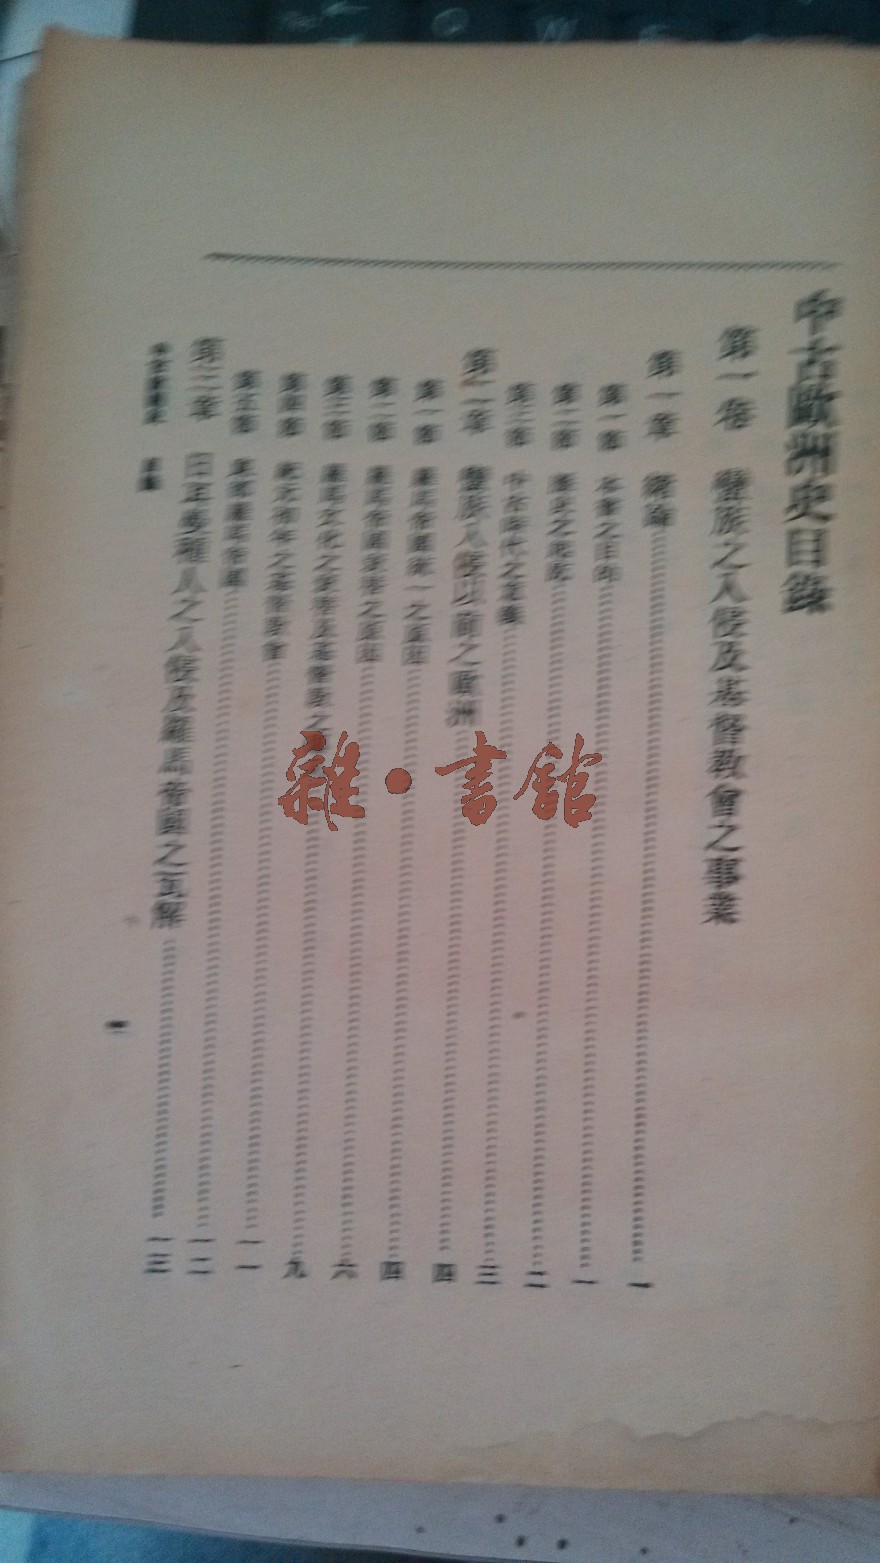 中古歐洲史目錄
第一卷 蠻族之入侵及基督教會之事業
第一章 緒論 一
第一節 本書之目的 一
第二節 歷史之 二
第三節 中古時代之 三
第二章 蠻族入侵以前之歐洲 四
第一節 羅馬帝國統一之原因 四
第二節 羅馬帝國衰替之原因 六
第三節 羅馬文化之衰替及基督教之 九
第四節 紀元初年之基督教會 一一
第五節 東部羅馬帝國 一二
第三章 日耳曼種人之入侵及羅馬帝國之瓦解 一三
中古歐洲史 目錄
一
雜·書館